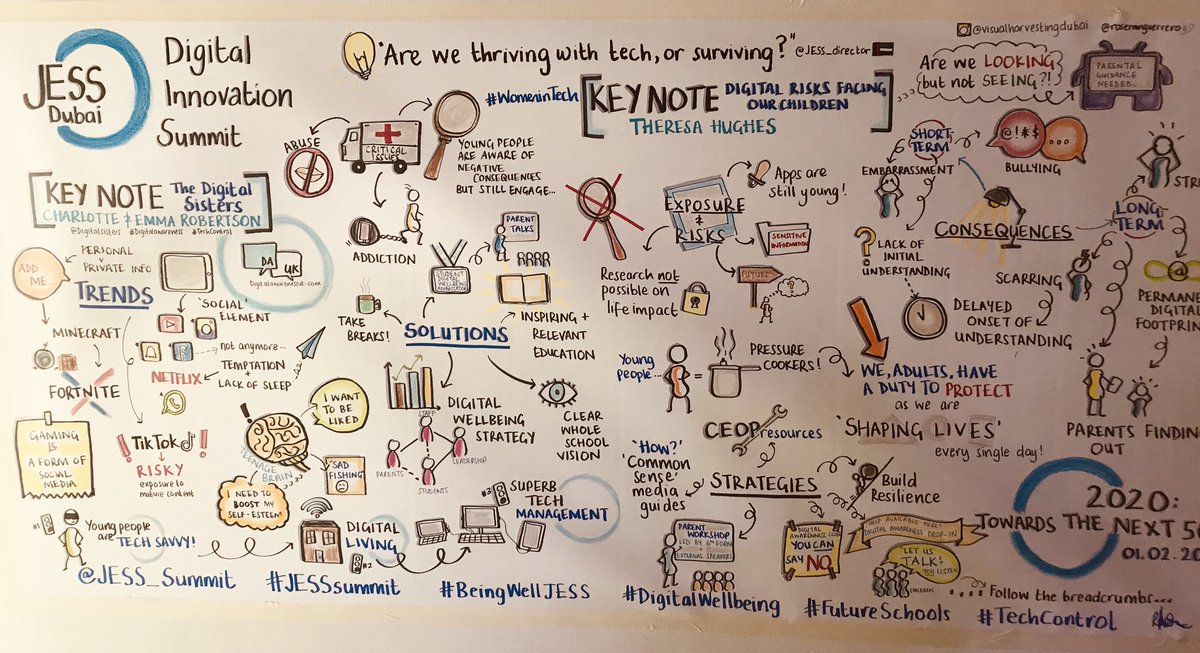 JESS
Dubai
Digital
Innovation
Summit
"Are we thriving with tech, or surviving?" @JESS_director
@visualharvestingdubai
#WomeninTech
KEY NOTE
The Digital
Sisters
CHARLOTTE & EMMA ROBERTSON
@Digitalsisters
#TechControl
ADD
ME...
PERSONAL
PRIVATE INFO
TRENDS
'SOCIAL'
ELEMENT
MINECRAFT
FORTNITE
not anymore...
TEMPTATION
+
LACK OF SLEEP
NETFLIX
GAMING
IS
A FORM OF
SOCIAL
MEDIA
! TikTok !
RISKY
exposure to
mature content
TEENAGE
BRAIN
I WANT
TO BE
LIKED
'SAD
FISHING'
I NEED TO
BOOST MY
SELF-ESTEEM
#1
Young people
are TECH SAVVY!
DIGITAL
LIVING
#2
DA
UK
ABUSE
CRITICAL
ISSUES
YOUNG PEOPLE
ARE AWARE OF
NEGATIVE
CONSEQUENCES
BUT STILL ENGAGE...
ADDICTION
PARENT
TALKS
STUDENT
DIGITAL
WELLBEING
AMBASSADOR
TAKE
BREAKS!
SOLUTIONS
INSPIRING +
RELEVANT
EDUCATION
DIGITAL
WELLBEING
STRATEGY
CLEAR
WHOLE
SCHOOL
VISION
STAFF
PARENTS
LEADERSHIP
STUDENTS
#3
SUPERB
TECH
MANAGEMENT
KEY NOTE
DIGITAL RISKS FACING
OUR CHILDREN
THERESA HUGHES
Are we LOOKING
but not SEEING?!
PARENTAL
GUIDANCE
NEEDED...
EXPOSURE
&
RISKS
Apps are
still young!
SENSITIVE
INFORMATION
FUTURE
?
Research not
possible on
life impact
Young
people...
=
PRESSURE
COOKERS!
SHORT-
TERM
EMBARRASSMENT
@!*$
...
BULLYING
CONSEQUENCES
LACK OF
INITIAL
UNDERSTANDING
DELAYED
ONSET OF
UNDERSTANDING
LONG-
TERM
STR
SCARRING
@
PERMANE
DIGITAL
FOOTPRIN
PARENTS FINDIN
OUT
WE, ADULTS, HAVE
A DUTY TO PROTECT
as we are
'SHAPING LIVES'
every single day!
CEOP resources
'How?'
'Common
Sense'
media
guides
STRATEGIES
Build
Resilience
PARENT
WORKSHOP
LED BY 6TH FORM
+
EXTERNAL SPEAKERS
DIGITAL
AWARENESS CLUB
YOU CAN
SAY NO
HELP AVAILABLE HERE!
DIGITAL AWARENESS DROP-IN
LET US
TALK!
YOU LISTEN
CHILDREN
Follow the breadcrumbs...
2020:
TOWARDS THE NEXT 50
01.02.20
@JESS_Summit
#JESSsummit
#BeingWellJESS
#DigitalWellbeing
#FutureSchools
#TechControl